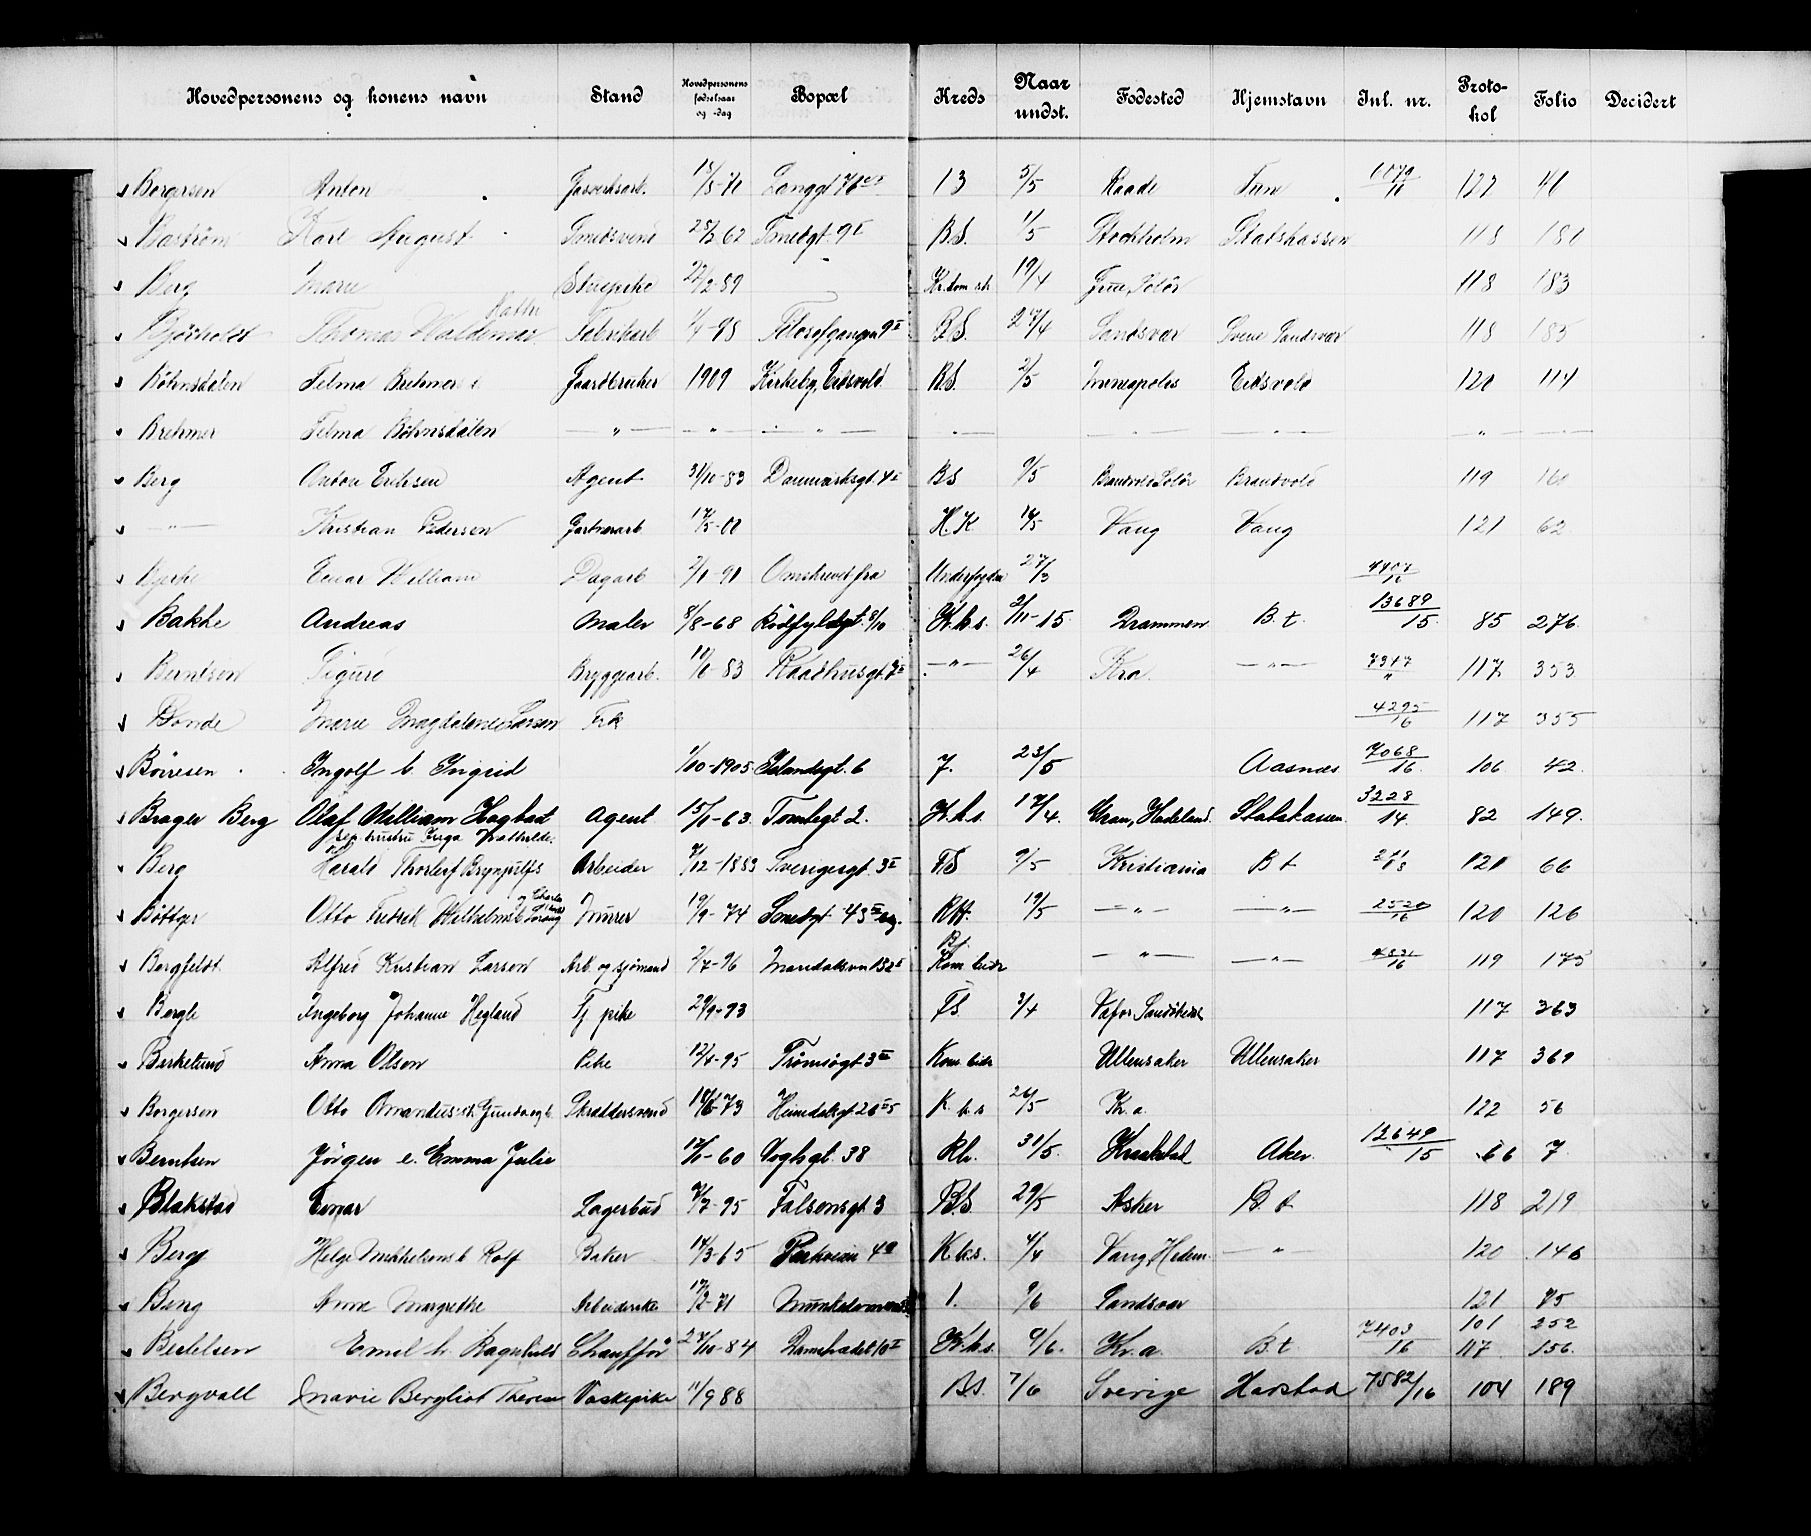 Hovedpersonens og konens navn Stand Hovedpersonens fødselsaar og -dag Bopæl Kreds Naar undst. Fødested Hjemstavn Inl. nr. Protokol Folio Decidert
Borgersen Anton Gasverksarb. 15/5-71 Langgt 76 13 5/5 Raade Tune 6079/16 122 41
Baström Karl August Smedsvend 25/2 62 Smedgt. 9 I B.S. 1/5 Stockholm Statskassen 118 181
Berg Marie Stuepike 22/2-89 19/4 Grue, Solør 118 183
Bjørholdt Thomas Waldemar Kathr Fabrikarb 1/4-98 Filosofgangen 9 II B.S. 27/4 Sandsvær Svene Sandsvær 118 185
Böhnsdalen Selma Brehmer Gaardbruker 1909 Kirkeby, Eidsvold B.S. 2/5 Eidsvold 120 114
Brehmer Selma Böhnsdalen — " — — " — — " — — " — — " — — " — — " —
Berg Anton Eriksen Agent 31/10-83 Danmarksgt. 4 BS 9/5 Solör Brandvold 119 160
— " — Kristian Pedersen Gartnerarb. 17/5-00 H.K. 16/5 Vang Vang 121 62
Bjerke Einar William Dagarb 2/1-91 Omskrevet fra 27/3 4407/16
Bakke Andreas Maler 8/8-68 Rödfyldgt. 9/10 K.k.s. 2/11-15. Drammen B.t. 13689/15. 85 276.
Berntsen Sigurd Bryggearb. 11/6-83 Raadhusgt. 7 — " — 26/4 Kra. — " — 7317/" 117 353
Bonde Marie Magdalene Larsen Frk 4295/16 117 355
Börresen Ingolf b. Ingrid 1/10-1905 Islandsgt. 6 7. 23/5 Aasnes 7068/16. 106 42.
Brager Berg Olaf William Hagbart Agent 15/1-63. Tomtegt 2. K.k.s. 17/4. Gran, Hadeland. Statskassen. 3228/14. 82 149.
sep. hustru Inga Mathilde.
Berg Harald Thorleif Brynjulfs Arbeider 7/12-1883 Sverigesgt. 3 II F.S 9/5 Kristiania B t 120 66
Böttger Otto Fredrik Wilhelm Murer 19/9-74 Smedgt. 43 II R.H. 19/5 — " — — " — 2520/16 120 126
Bergfeldt. Alfred Kristian Larsen Arb. og sjömand 2/7-96 Maridalsvn 152 II Kom beidr — " — — " — 4831/16 119 175
Bergle Ingeborg Johanne Hegland Tj. pike 29/9-93 F.S. 3/4 117 363
Birkelund Anna Olsen Pike 12/4-95 Tromsögt 3 III Kom. beidr Ullensaker Ullensaker 117 369
Borgersen Otto Amandus Skræddersvend 14/6-73 Heimdalsgt 26 K.k.s 26/5 Kr.a. 122 56
Berntsen Jörgen e. Emma Julie 17/1-60 Vogtsgt. 38 Rk. 31/5. Kraakstad Aker. 12649/15 66 7.
Blakstad Einar Lagerbud 7/7-95 Falsensgt. 3 B.S. 29/5 Asker B.t 118 219
Berg Helge Mikkelsens b. Rolf Baker 14/3-65 Parkveien 4 K.k.s. 4/4 Vang, Hedem. — " — 120 146
Berg Anne Margrethe Arbeiderske 17/2-71 1. 9/6 Sandsvær 121 75
Bertelsen Emil h. Ragnhild Chauffør 27/10-84 10 II K.k.s. 9/6. Kr.a. B.t 7403/16 101 252
117. 156.
Bergvall Marie Bergliot Therese Vaskepike 11/9 88 B.S. 7/6 Sverige Harstad 7582/16 104 189